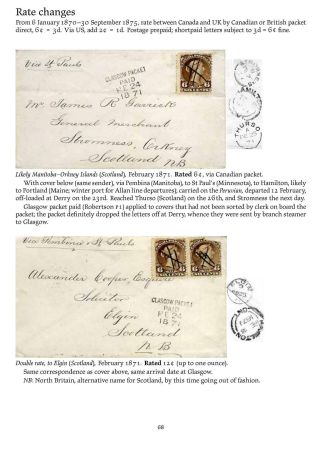 Rate changes
From 6 January 1870–30 September 1875, rate between Canada and UK by Canadian or British packet
direct, 6¢ = 3d. Via US, add 2¢ = 1d. Postage prepaid; shortpaid letters subject to 3d = 6¢ fine.
Via St Pauls
GLASGOW PACKET
PAID
FE 24
1871
Mr. James R
General Merchant
Stromness, Orkney
Scotland NB
THURSO
Likely Manitoba–Orkney Islands (Scotland), February 1871. Rated 6¢, via Canadian packet.
With cover below (same sender), via Pembina (Manitoba), to St Paul's (Minnesota), to Hamilton, likely
to Portland (Maine; winter port for Allan line departures), carried on the Peruvian, departed 12 February,
off-loaded at Derry on the 23rd. Reached Thurso (Scotland) on the 26th, and Stromness the next day.
Glasgow packet paid (Robertson P1) applied to covers that had not been sorted by clerk on board the
packet; the packet definitely dropped the letters off at Derry, whence they were sent by branch steamer
to Glasgow.
Via Pembina & St. Pauls
Alexander Cooper, Esquire
Solicitor
Elgin
Scotland
N B
GLASGOW PACKET
PAID
FE 24
1871
Double rate, to Elgin (Scotland), February 1871. Rated 12¢ (up to one ounce).
Same correspondence as cover above, same arrival date at Glasgow.
NB: North Britain, alternative name for Scotland, by this time going out of fashion.
68